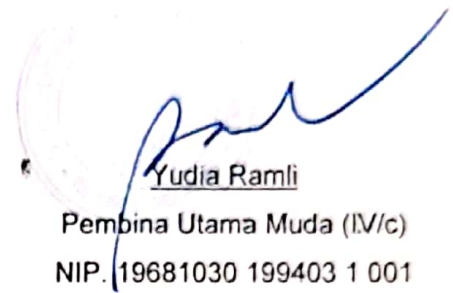 Yudia Ramli
Pembina Utama Muda (IV/c)
NIP. 19681030 199403 1 001